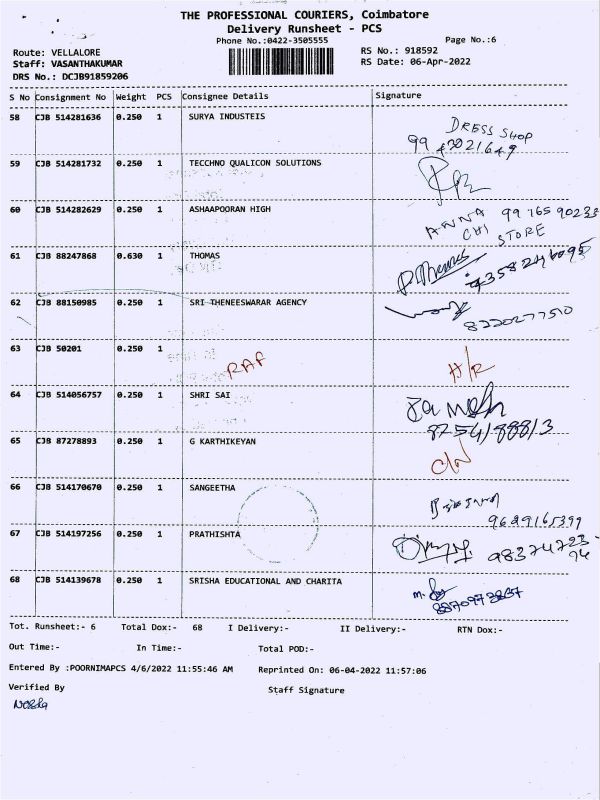 THE PROFESSIONAL COURIERS, Coimbatore
Delivery Runsheet - PCS
Phone No.:0422-3505555
Page No.:6
Route: VELLALORE
RS No.: 918592
Staff: VASANTHAKUMAR
RS Date: 06-Apr-2022
DRS No.: DCJB91859206
S No Consignment No Weight PCS Consignee Details Signature
58 CJB 514281636 0.250 1 SURYA INDUSTEIS
DRESS SHOP
59 CJB 514281732 0.250 1 TECCHNO QUALICON SOLUTIONS
60 CJB 514282629 0.250 1 ASHAAPOORAN HIGH
ANNA 99 765 90233
CHI STORE
61 CJB 88247868 0.630 1 THOMAS
62 CJB 88150985 0.250 1 SRI THENEESWARAR AGENCY
8220277510
63 CJB 50201 0.250 1
RAF H/R
64 CJB 514056757 0.250 1 SHRI SAI
8254188813
65 CJB 87278893 0.250 1 G KARTHIKEYAN
C/N
66 CJB 514170670 0.250 1 SANGEETHA
9629165399
67 CJB 514197256 0.250 1 PRATHISHTA
98374723-
94
68 CJB 514139678 0.250 1 SRISHA EDUCATIONAL AND CHARITA
Tot. Runsheet:- 6 Total Dox:- 68 I Delivery:- II Delivery:- RTN Dox:-
Out Time:- In Time:- Total POD:-
Entered By :POORNIMAPCS 4/6/2022 11:55:46 AM Reprinted On: 06-04-2022 11:57:06
Verified By Staff Signature